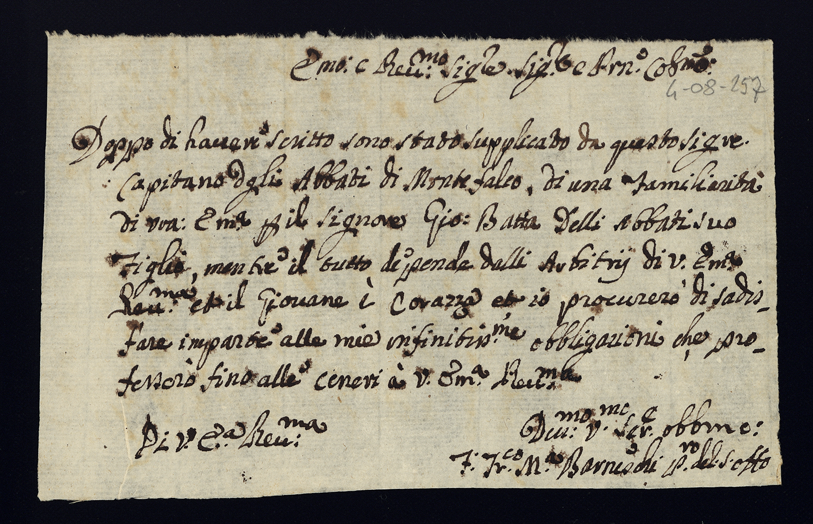 Emo: e Reu:mo Sigre. Sigre e Prne Colmo:
4-08-257
Doppo di hauere scritto sono stato supplicato da questo sigre.
Capitano Dgli Abbati di Monte falco, di una familiarità
di vra: Emza p il signore Gio: Batta Delli Abbati suo
Figlio, mentre il tutto depende dalli Arbitrij di v. Emza
Reu:ma et il Giouane è Corazza et io procurerò di sadis-
fare in parte alle mie infinitissme obbligazioni che pro-
fesserò fino alle ceneri à v. Ema Reu:ma
Di v. Ea Reu:ma
Diu:mo v:mo Sere obbmo:
F. Frco Ma Barneschi del s. offo